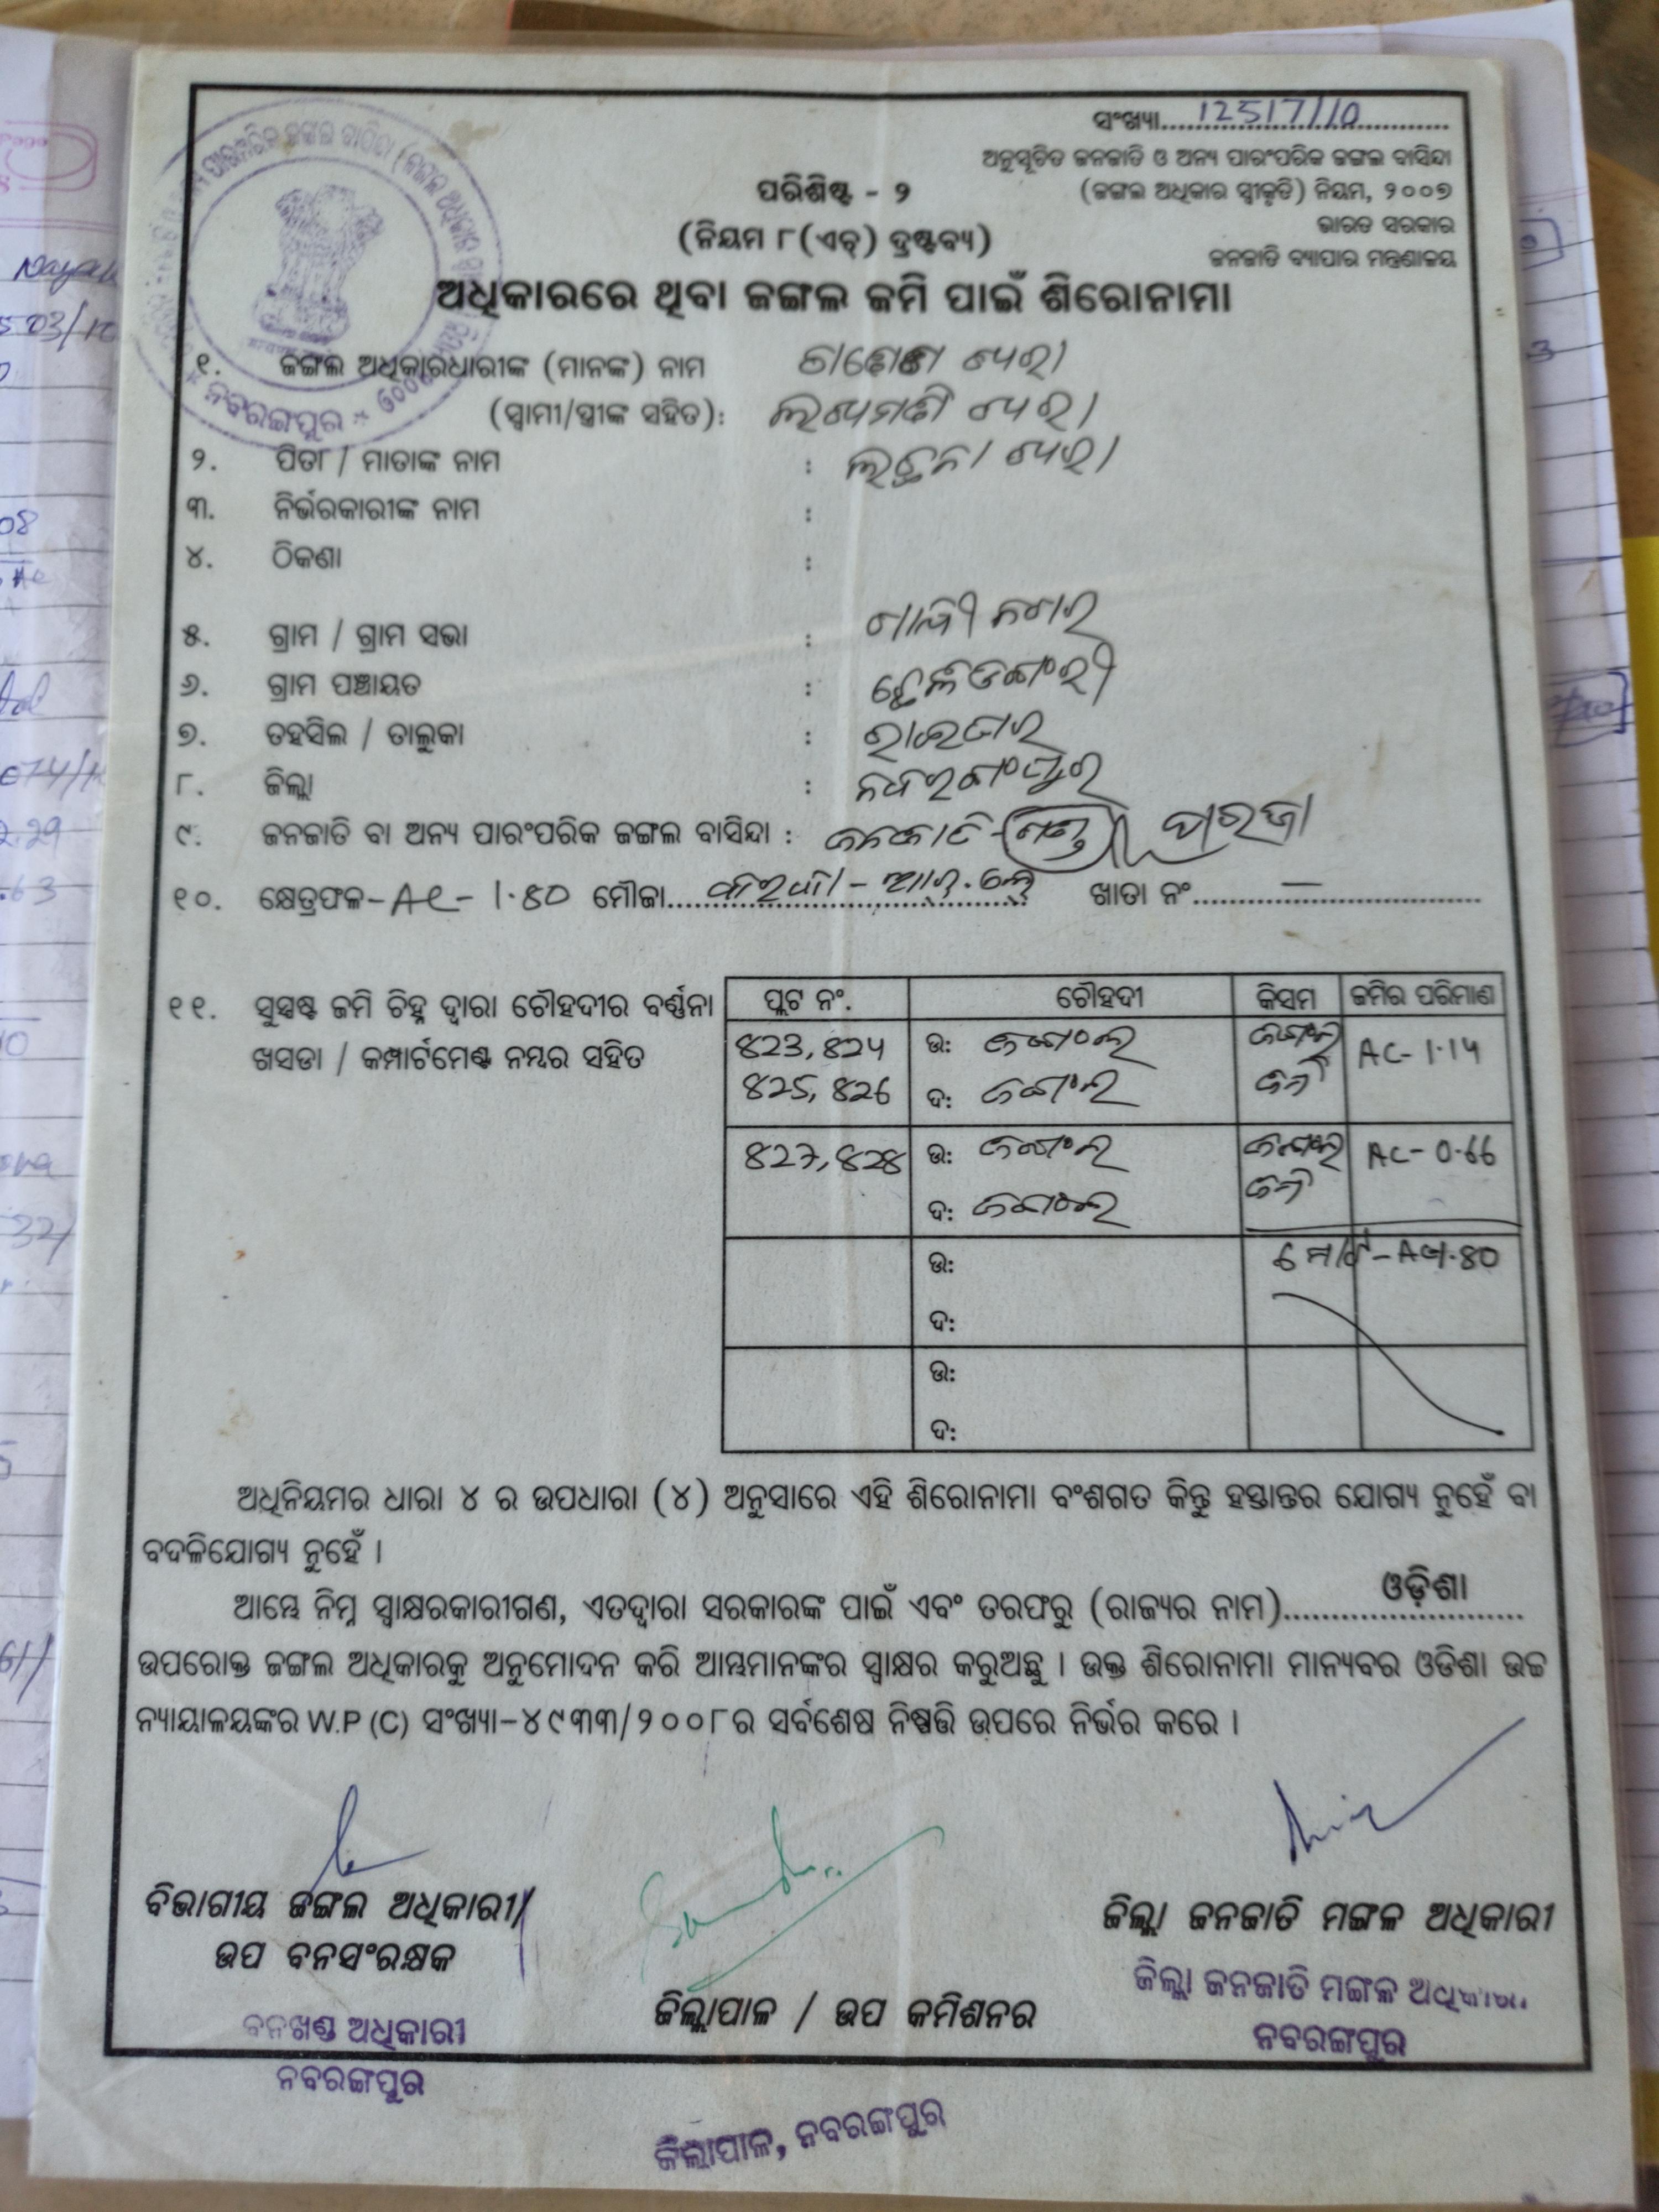 ସଂଖ୍ୟା 12517/10
ଅନୁସୂଚିତ ଜନଜାତି ଓ ଅନ୍ୟ ପାରଂପରିକ ଜଙ୍ଗଲ ବାସିନ୍ଦା
(ଜଙ୍ଗଲ ଅଧିକାର ସ୍ୱୀକୃତି) ନିୟମ, ୨୦୦୭
ଭାରତ ସରକାର
ଜନଜାତି ବ୍ୟାପାର ମନ୍ତ୍ରଣାଳୟ
ପରିଶିଷ୍ଟ - ୨
(ନିୟମ ୮(ଏଚ୍) ଦ୍ରଷ୍ଟବ୍ୟ)
ଅଧିକାରରେ ଥିବା ଜଙ୍ଗଲ ଜମି ପାଇଁ ଶିରୋନାମା
ନବରଙ୍ଗପୁର
୧. ଜଙ୍ଗଲ ଅଧିକାରଧାରୀଙ୍କ (ମାନଙ୍କ) ନାମ
(ସ୍ୱାମୀ/ସ୍ତ୍ରୀଙ୍କ ସହିତ):
୨. ପିତା / ମାତାଙ୍କ ନାମ :
୩. ନିର୍ଭରକାରୀଙ୍କ ନାମ :
୪. ଠିକଣା :
୫. ଗ୍ରାମ / ଗ୍ରାମ ସଭା : ଗାନ୍ଧୀ ନଗର
୬. ଗ୍ରାମ ପଞ୍ଚାୟତ :
୭. ତହସିଲ / ତାଲୁକା : ରାଇଘର
୮. ଜିଲ୍ଲା : ନବରଙ୍ଗପୁର
୯. ଜନଜାତି ବା ଅନ୍ୟ ପାରଂପରିକ ଜଙ୍ଗଲ ବାସିନ୍ଦା : ଜନଜାତି - ଗଣ୍ଡ ପରଜା
୧୦. କ୍ଷେତ୍ରଫଳ- AC - 1.80 ମୌଜା ଖାତା ନଂ —
୧୧. ସୁସ୍ପଷ୍ଟ ଜମି ଚିହ୍ନ ଦ୍ୱାରା ଚୌହଦୀର ବର୍ଣ୍ଣନା
ଖସଡା / କମ୍ପାର୍ଟମେଣ୍ଟ ନମ୍ବର ସହିତ
ପ୍ଲଟ ନଂ. ଚୌହଦୀ କିସମ ଜମିର ପରିମାଣ
823, 824 ଉ: ଜଙ୍ଗଲ ଜଙ୍ଗଲ AC- 1.14
825, 826 ଦ: ଜଙ୍ଗଲ ଜମି
827, 828 ଉ: ଜଙ୍ଗଲ ଜଙ୍ଗଲ AC- 0.66
ଦ: ଜଙ୍ଗଲ ଜମି
ଉ: ମୋଟ - AC-1.80
ଦ:
ଉ:
ଦ:
ଅଧିନିୟମର ଧାରା ୪ ର ଉପଧାରା (୪) ଅନୁସାରେ ଏହି ଶିରୋନାମା ବଂଶଗତ କିନ୍ତୁ ହସ୍ତାନ୍ତର ଯୋଗ୍ୟ ନୁହେଁ ବା
ବଦଳିଯୋଗ୍ୟ ନୁହେଁ ।
ଆମ୍ଭେ ନିମ୍ନ ସ୍ୱାକ୍ଷରକାରୀଗଣ, ଏତଦ୍ୱାରା ସରକାରଙ୍କ ପାଇଁ ଏବଂ ତରଫରୁ (ରାଜ୍ୟର ନାମ) ଓଡ଼ିଶା
ଉପରୋକ୍ତ ଜଙ୍ଗଲ ଅଧିକାରକୁ ଅନୁମୋଦନ କରି ଆମ୍ଭମାନଙ୍କର ସ୍ୱାକ୍ଷର କରୁଅଛୁ । ଉକ୍ତ ଶିରୋନାମା ମାନ୍ୟବର ଓଡିଶା ଉଚ୍ଚ
ନ୍ୟାୟାଳୟଙ୍କର W.P (C) ସଂଖ୍ୟା-୪୯୩୩/୨୦୦୮ର ସର୍ବଶେଷ ନିଷ୍ପତ୍ତି ଉପରେ ନିର୍ଭର କରେ ।
ବିଭାଗୀୟ ଜଙ୍ଗଲ ଅଧିକାରୀ/
ଉପ ବନସଂରକ୍ଷକ
ବନଖଣ୍ଡ ଅଧିକାରୀ
ନବରଙ୍ଗପୁର
ଜିଲ୍ଲାପାଳ / ଉପ କମିଶନର
ଜିଲ୍ଲାପାଳ, ନବରଙ୍ଗପୁର
ଜିଲ୍ଲା ଜନଜାତି ମଙ୍ଗଳ ଅଧିକାରୀ
ଜିଲ୍ଲା ଜନଜାତି ମଙ୍ଗଳ ଅଧିକାରୀ
ନବରଙ୍ଗପୁର